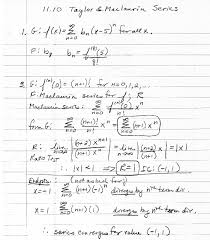 11.10 Taylor & Maclaurin Series
1. G: f(x) = ∞Σn=0 bₙ(x-5)ⁿ for all x.
F: b₈ b₈ = f⁽⁸⁾(5)/8!
2. G: f⁽ⁿ⁾(0) = (n+1)! for n=0,1,2,...
F: Maclaurin series for f; R
Maclaurin series: ∞Σn=0 f⁽ⁿ⁾(0)/n! xⁿ
from G: ∞Σn=0 (n+1)!/n! xⁿ = ∞Σn=0 (n+1)xⁿ
R: lim n→∞ |(n+2)xⁿ⁺¹/(n+1)xⁿ| = lim n→∞ |n+2/n+1 x|
Ratio Test
∴ |x|<1 ⇒ R=1 IC: (-1,1)
Endpts: (not asked for)
x=-1 ∞Σn=0 (n+1)(-1)ⁿ diverges by nᵗʰ term div.
x=1 ∞Σn=0 (n+1)(1) diverges by nᵗʰ term div.
∴ series converges for value (-1,1)